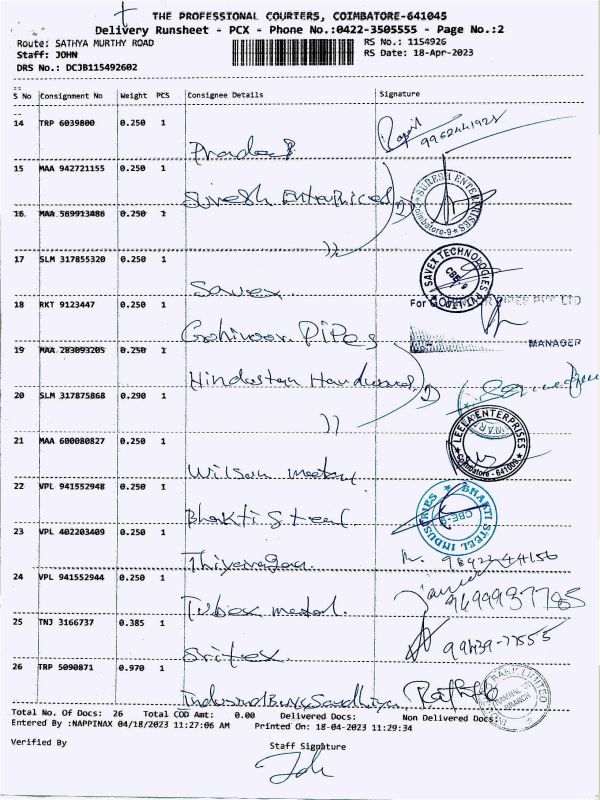 THE PROFESSIONAL COURIERS, COIMBATORE-641045
Delivery Runsheet - PCX - Phone No.:0422-3505555 - Page No.:2
Route: SATHYA MURTHY ROAD RS No.: 1154926
Staff: JOHN RS Date: 18-Apr-2023
DRS No.: DCJB115492602
S No Consignment No Weight PCS Consignee Details Signature
14 TRP 6039800 0.250 1
Pradeep
15 MAA 942721155 0.250 1
Suresh Enterprices
SURESH ENTERPRISES Coimbatore-9
16 MAA 569913486 0.250 1
))
17 SLM 317855320 0.250 1
Savex
SAVEX TECHNOLOGIES PVT LTD CBE-9
18 RKT 9123447 0.250 1
For PIPES PVT LTD
Gohinoor Pipes
MANAGER
19 MAA 283093205 0.250 1
Hindustan
20 SLM 317875868 0.290 1
))
21 MAA 600080827 0.250 1
LEELA ENTERPRISES Coimbatore - 641009
Wilson metal
22 VPL 941552948 0.250 1
Bhakti Steel
BHAKTI STEEL INDUSTRIES CBE-9
23 VPL 402203409 0.250 1
Thiyagarajan
24 VPL 941552944 0.250 1
Tubex metal.
25 TNJ 3166737 0.385 1
Sritex
99439-77555
26 TRP 5090871 0.970 1
BANK LIMITED BRANCH
Total No. Of Docs: 26 Total COD Amt: 0.00 Delivered Docs: Non Delivered Docs:
Entered By :NAPPINAX 04/18/2023 11:27:06 AM Printed On: 18-04-2023 11:29:34
Verified By Staff Signature
John